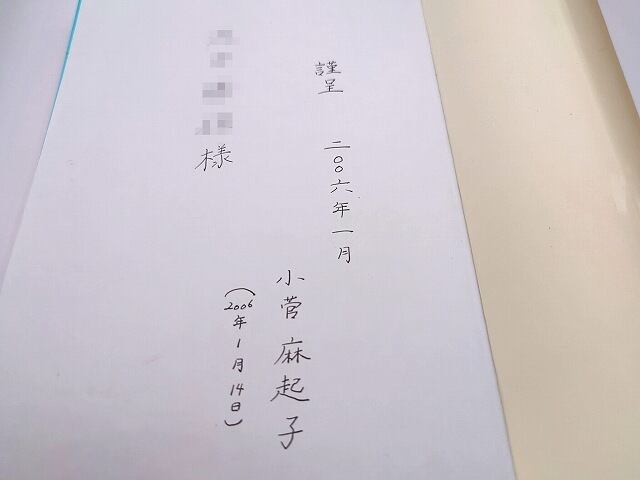 謹呈 二〇〇六年一月
小菅麻起子
(2006年1月14日)
様